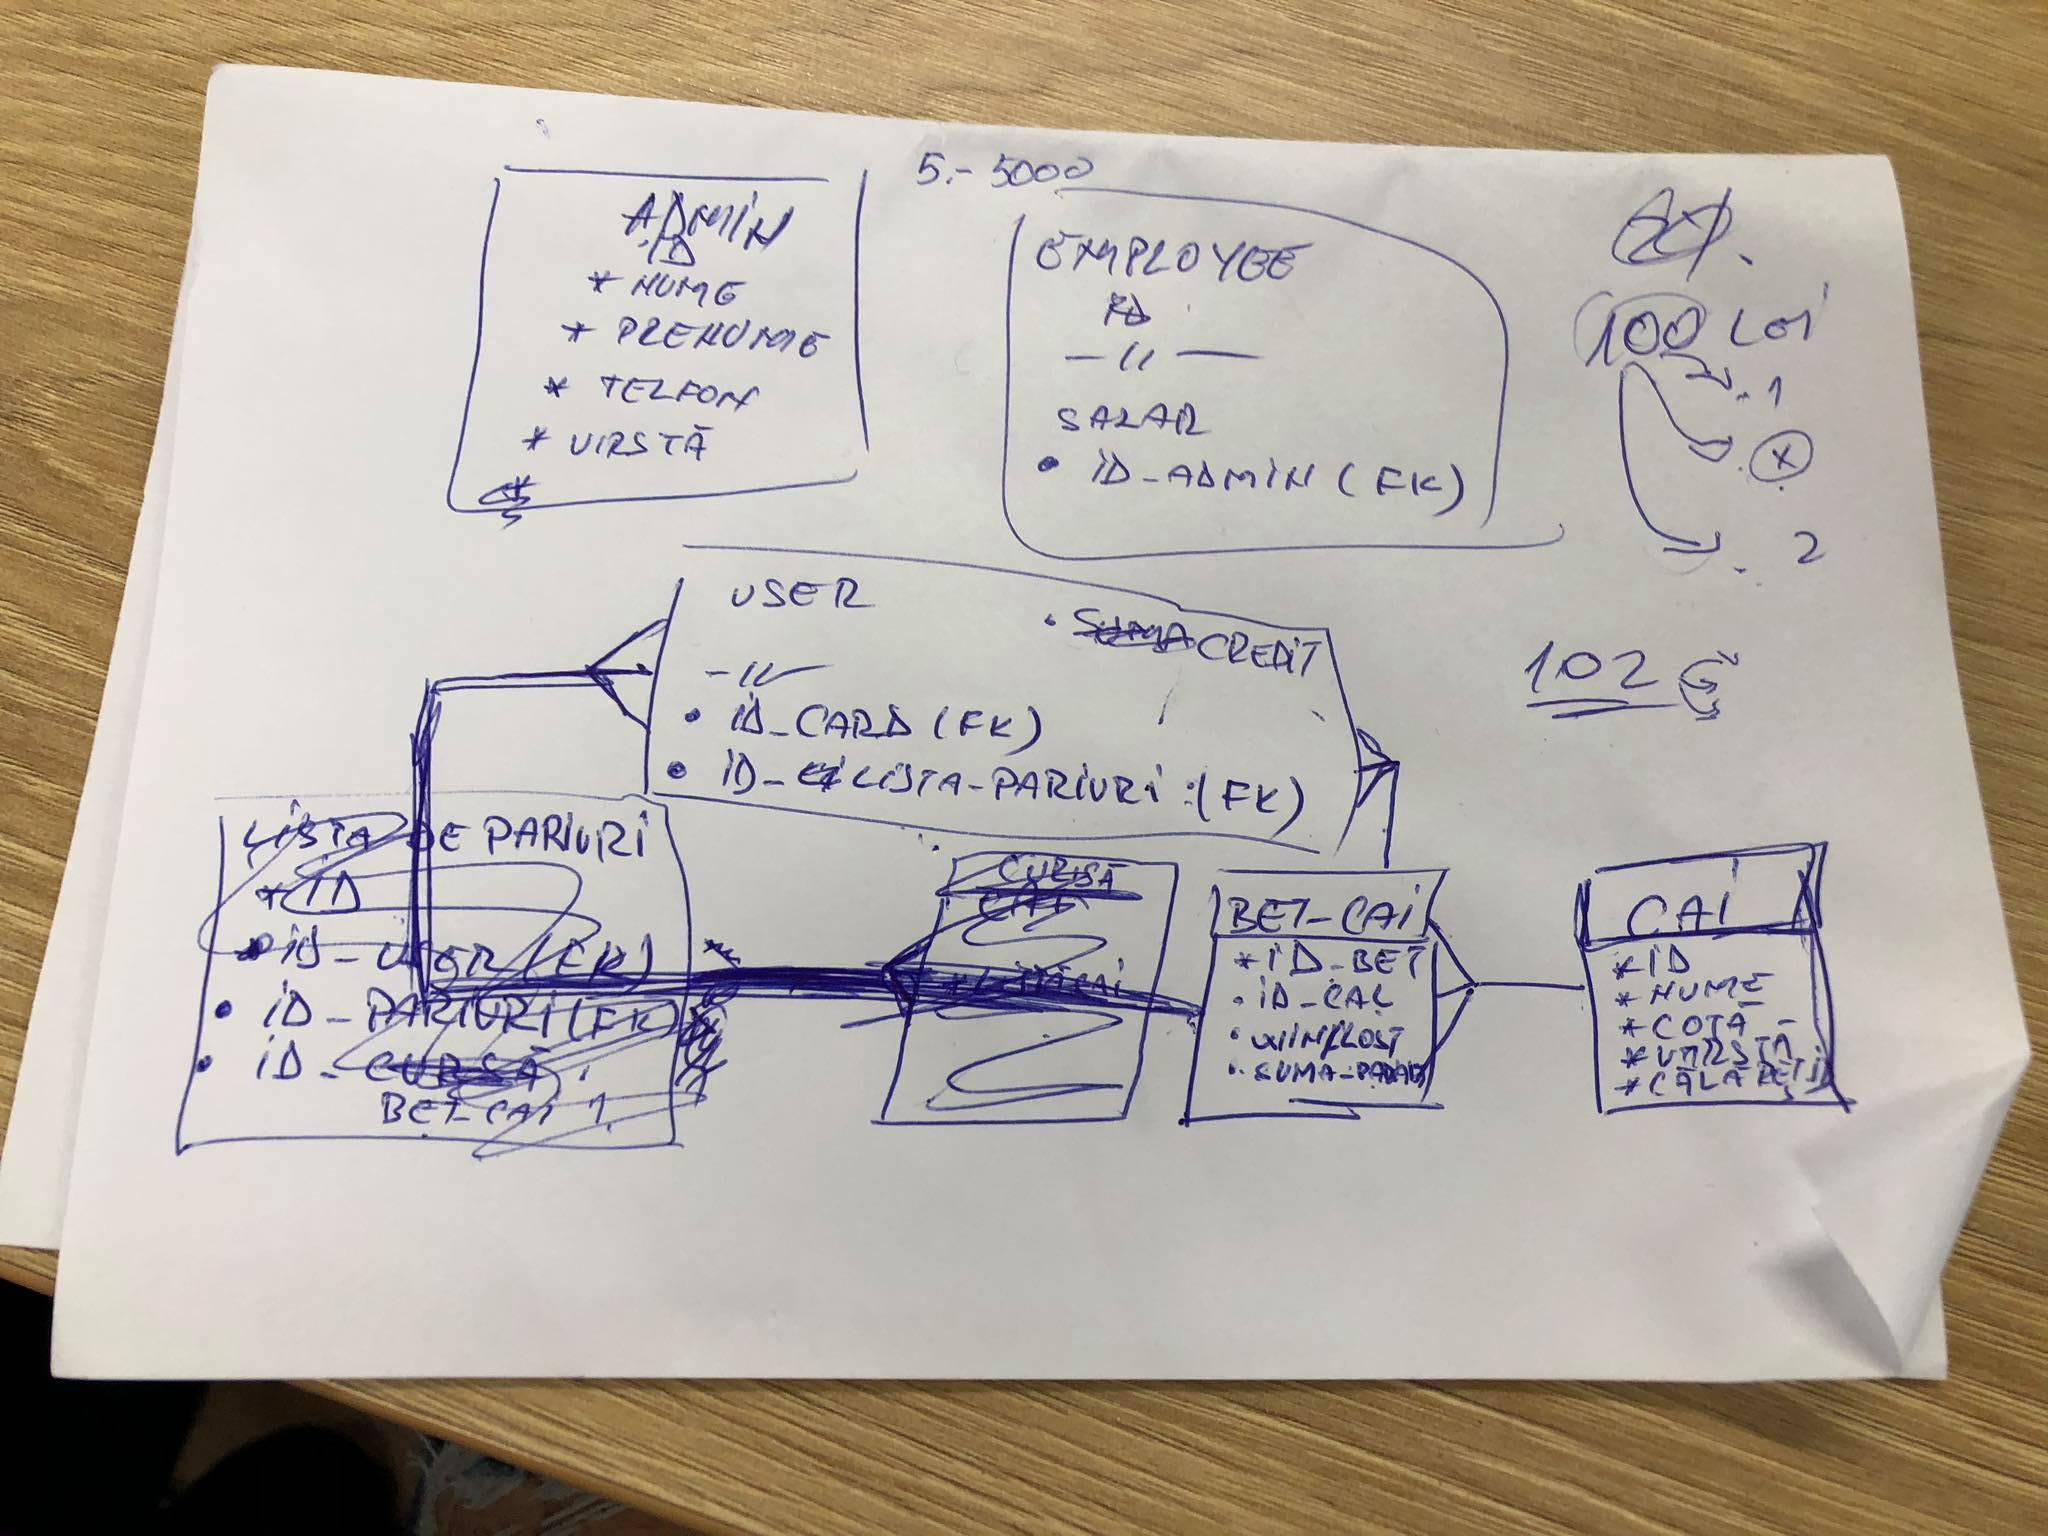 5.- 5000
ADMIN
ID
* NUME
* PRENUME
* TELFON
* VIRSTĂ
EMPLOYEE
— 〃 —
SALAR
• ID_ADMIN (FK)
100 LEI
. 1
. X
. 2
102
USER
• SUMA CREDIT
— 〃 —
• ID_CARD (FK)
• ID_LISTA-PARIURI (FK)
LISTA DE PARIURI
* ID
• ID_USER (FK)
• ID_PARIURI (FK)
• ID_CURSĂ
BET-CAI 1
CURSĂ
BET-CAI
* ID_BET
• ID_CAL
• WIN/LOST
CAI
* ID
* NUME
* COTĂ
* VÂRSTĂ